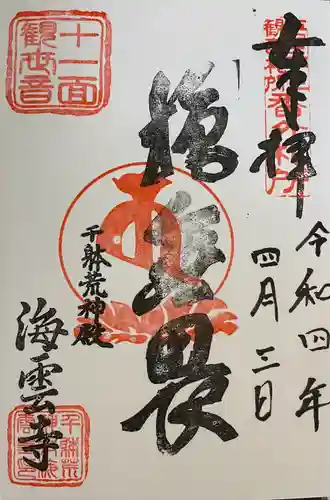 奉拝
令和四年
四月三日
施無畏
千躰荒神殿
海雲寺
十一面
観世音